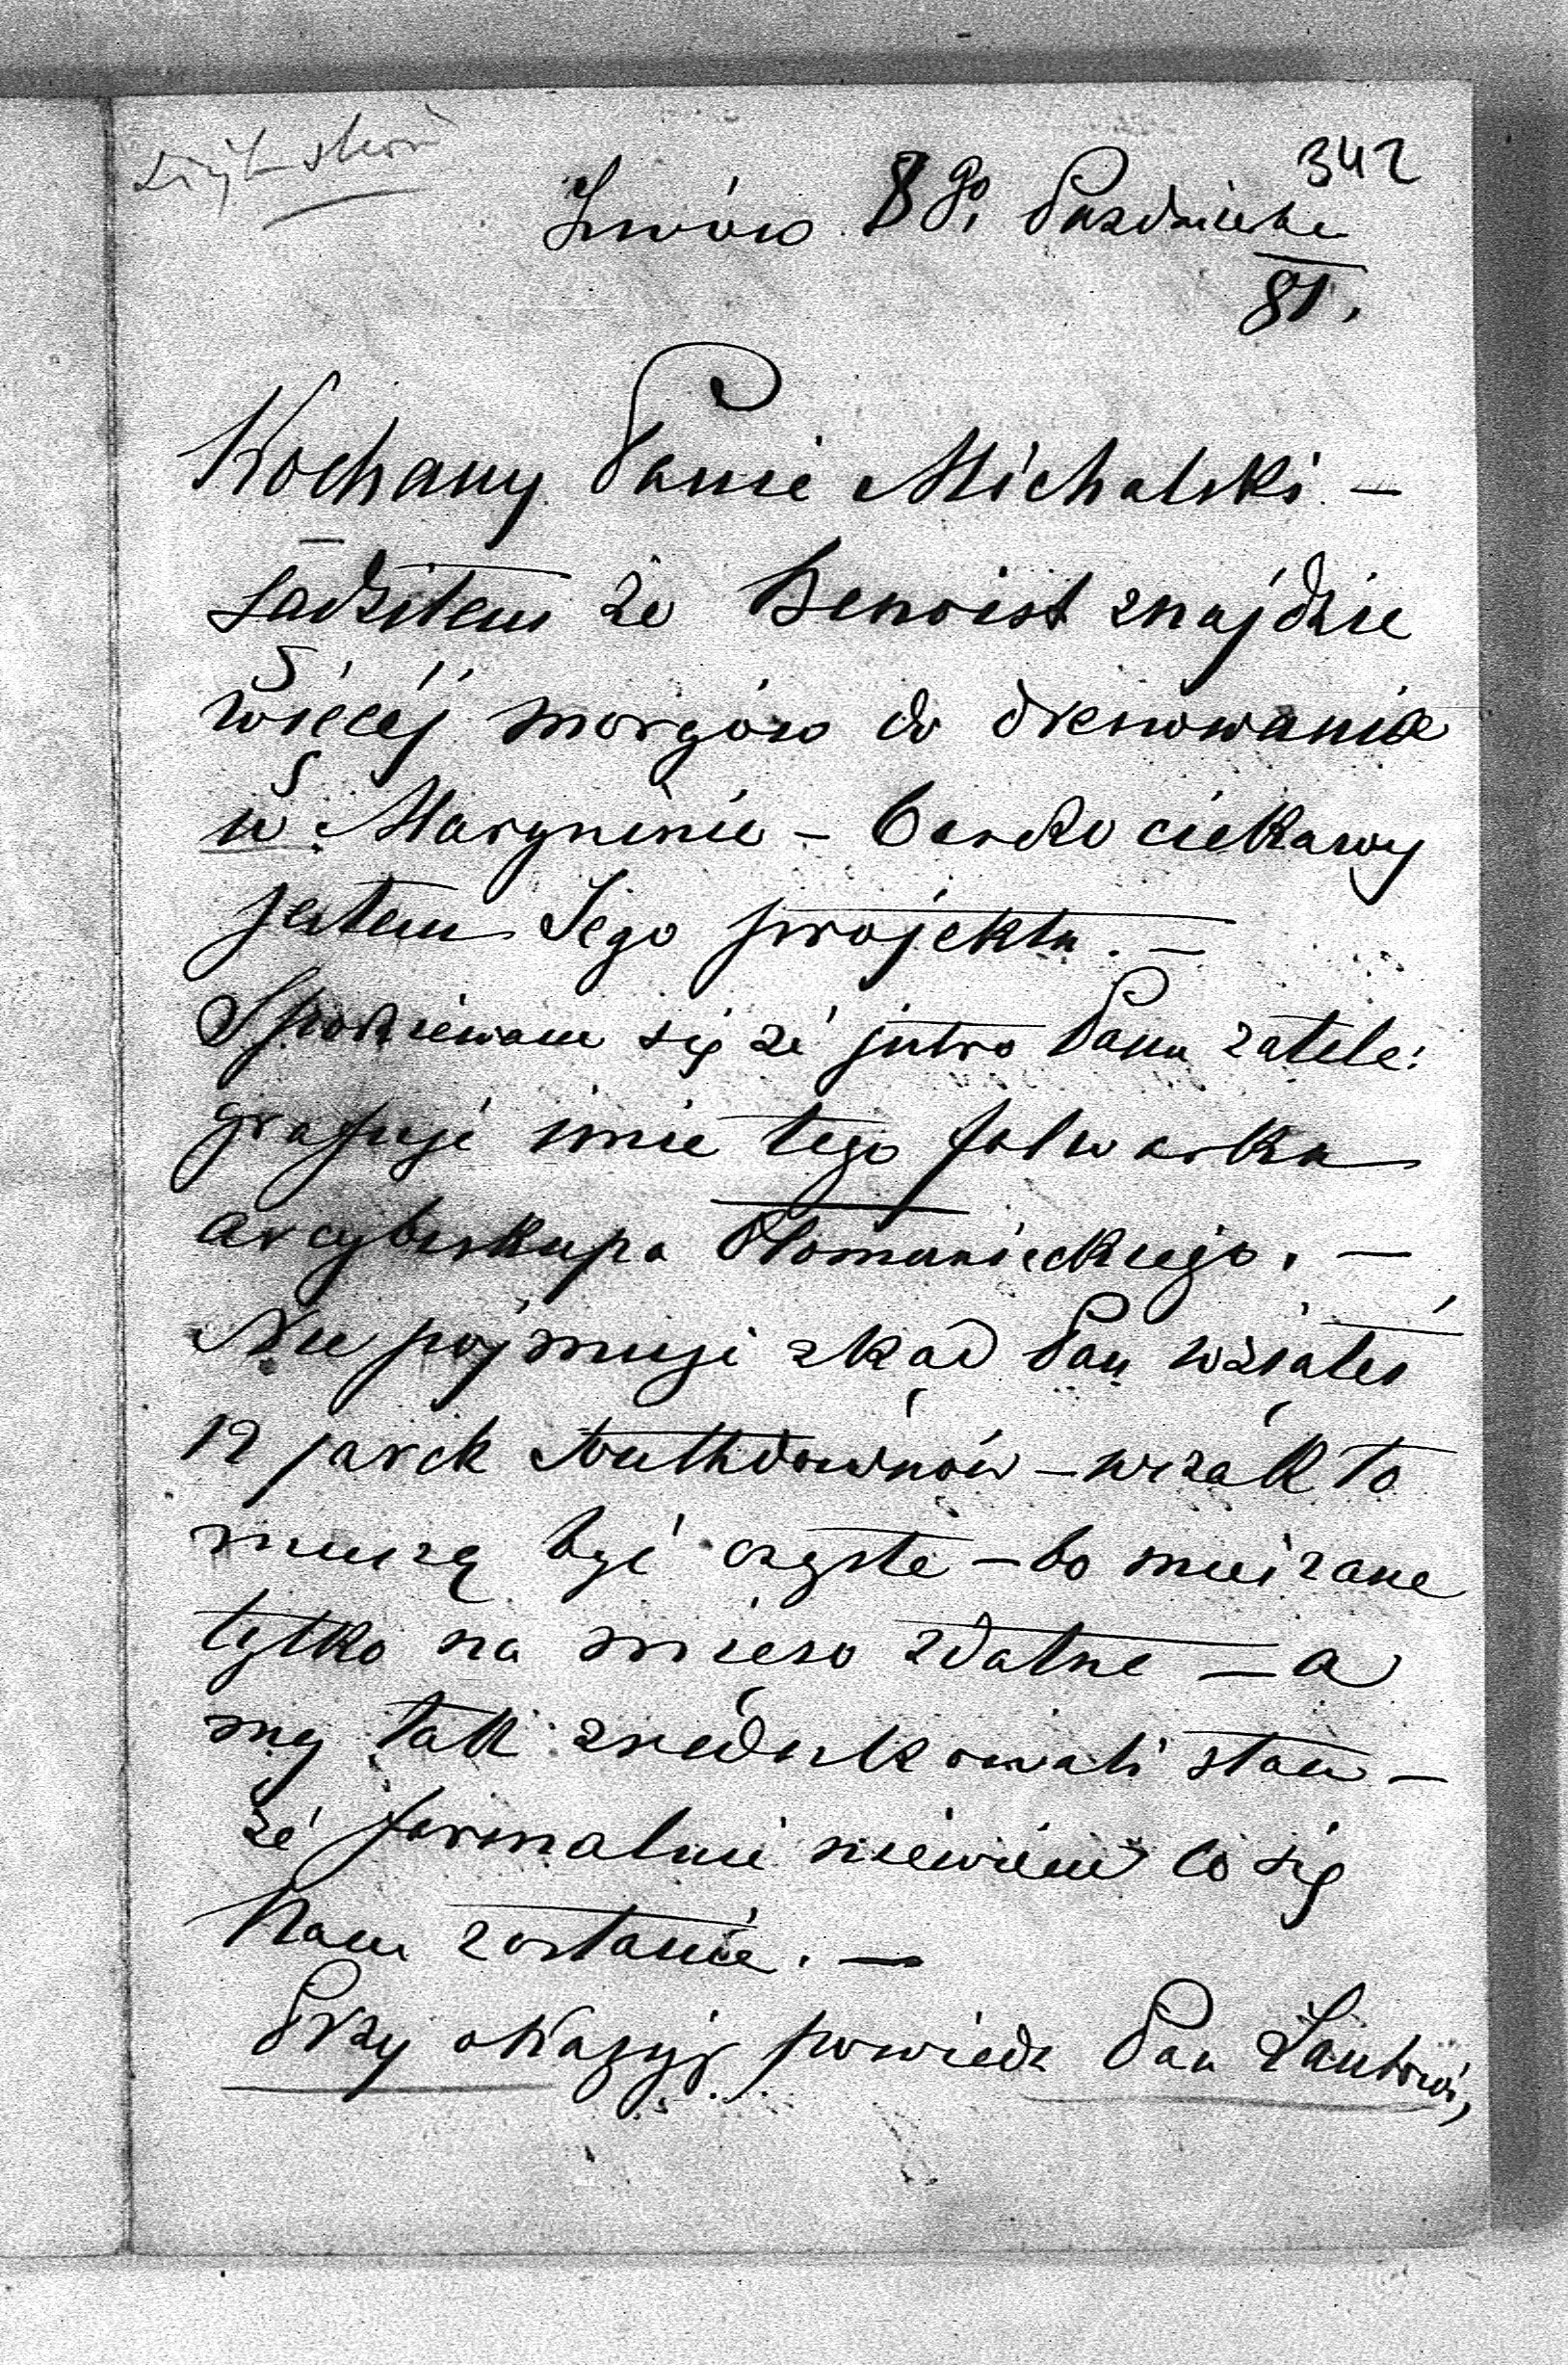 342
Lwów 8go. Pazdziernika
81.
Kochany Panie Michalski –
sadziłem że Benoist znajdzie
więcéj morgów do drenowania
w Maryninie – bardzo ciekawy
jestem Jego projektu. –
Spodziewam się że jutro Panu zatele:
grafuje imie tego folwarku
arcybiskupa Ołomunieckiego. –
Nie pojmuje zkąd Pan wziąłeś
12 jarek Southdownów – wszak to
muszą być czyste – bo miészane
tylko na mieso zdatne – a
my tak zredukowali stan –
że formalnie niewiem co się
Nam zostanie. –
Przy okazyi powiedz Pan